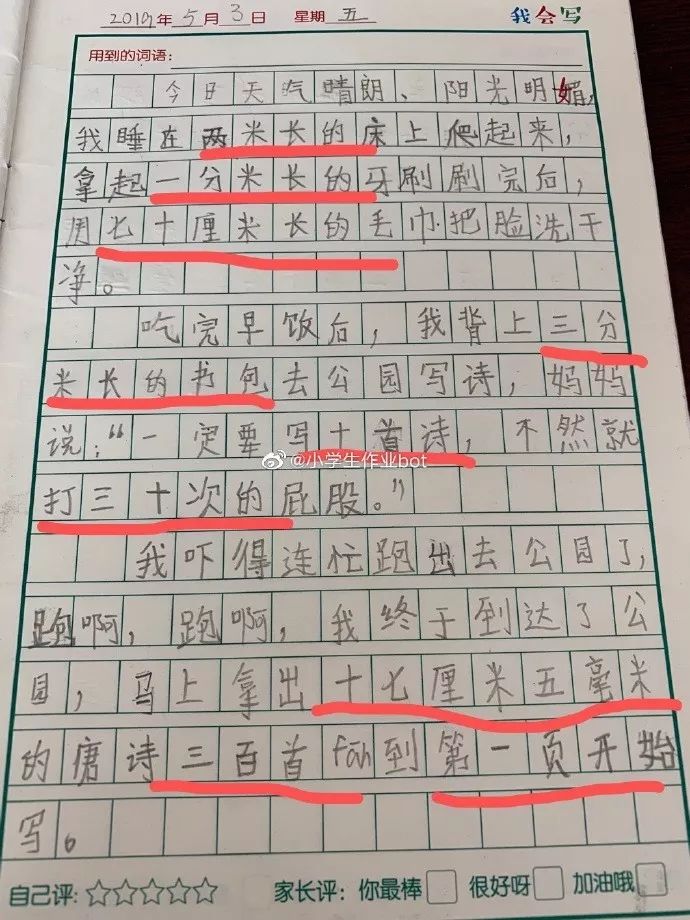 2019年5月3日 星期五 我会写
用到的词语:
今日天气晴朗、阳光明媚,
我睡在两米长的床上爬起来,
拿起一分米长的牙刷刷完后,
用七十厘米长的毛巾把脸洗干
净。
吃完早饭后,我背上三分
米长的书包去公园写诗,妈妈
说:“一定要写十首诗,不然就
@小学生作业bot
打三十次的屁股。”
我吓得连忙跑出去公园了,
跑啊,跑啊,我终于到达了公
园,马上拿出十七厘米五毫米
的唐诗三百首fān到第一页开始
写。
自己评:☆☆☆☆☆ 家长评:你最棒□ 很好呀□ 加油哦□